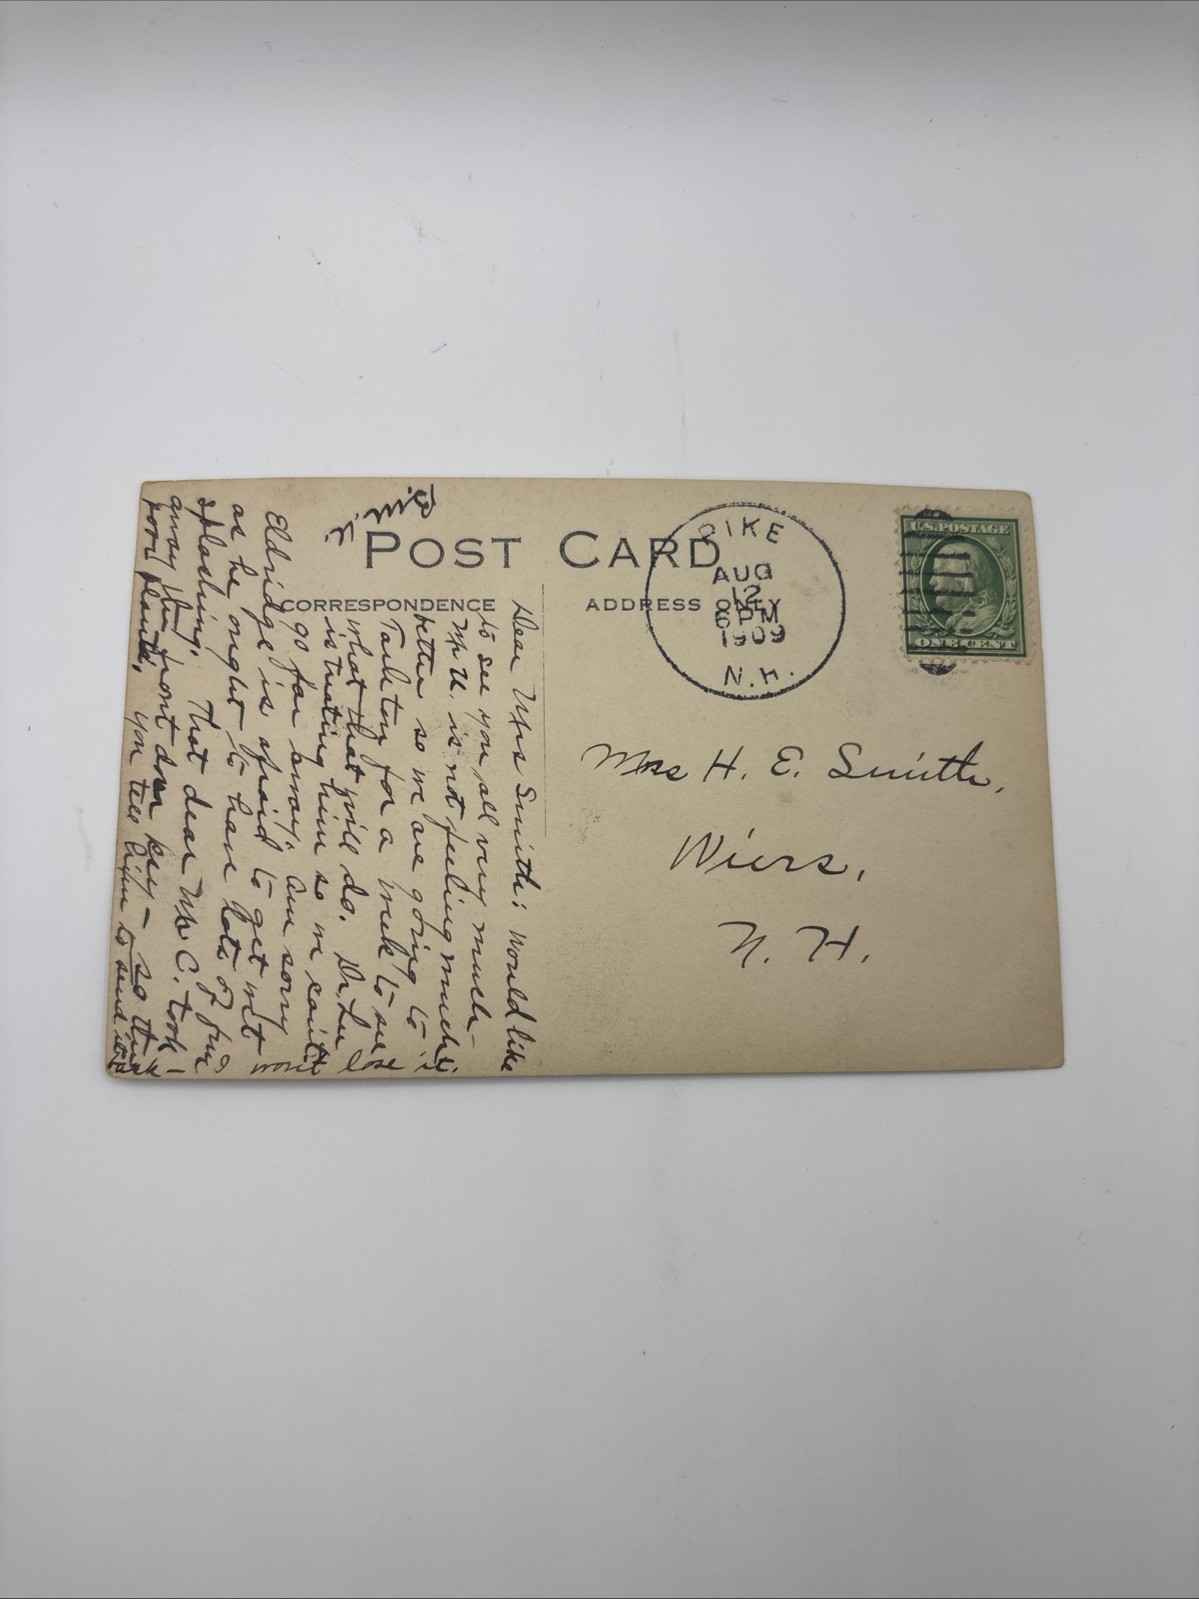 POST CARD
CORRESPONDENCE
ADDRESS ONLY
PIKE
AUG
12
6 PM
1909
N.H.
U.S. POSTAGE
ONE CENT
Mrs H. E. Smith,
Wiers,
N. H.
Dear Mrs Smith: Would like
to see you all very much –
Mr U. is not feeling much
better so we are going to
for a week to see
what that will do. Dr.
is treating him so we can't
go far away. Am sorry
Eldridge is afraid to get wet
as he ought to have lots of fun
splashing. That dear Mr C. took
away the front door key – so think –
poor plants. You tell him to send